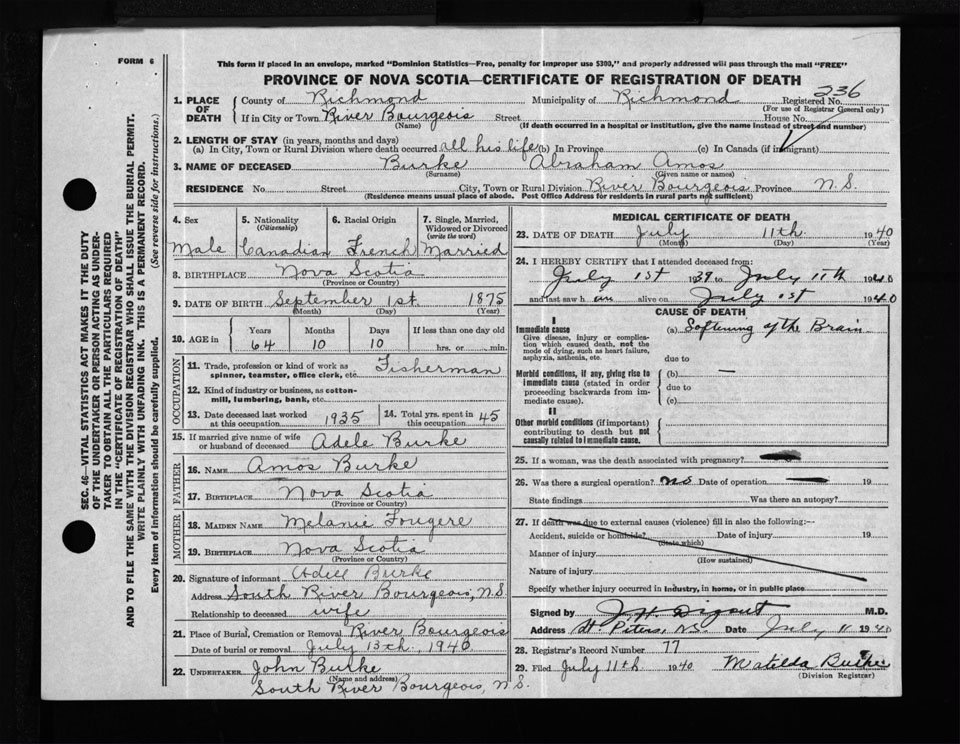 FORM 6
This form if placed in an envelope, marked "Dominion Statistics—Free, penalty for improper use $300," and properly addressed will pass through the mail "FREE"
PROVINCE OF NOVA SCOTIA—CERTIFICATE OF REGISTRATION OF DEATH
236
1. PLACE OF DEATH County of Richmond Municipality of Richmond Registered No.
(For use of Registrar General only)
If in City or Town River Bourgeois Street House No.
(Name) (If death occurred in a hospital or institution, give the name instead of street and number)
2. LENGTH OF STAY (in years, months and days)
(a) In City, Town or Rural Division where death occurred all his life (b) In Province (c) In Canada (if immigrant)
3. NAME OF DECEASED Burke Abraham Amos
(Surname) (Given name or names)
RESIDENCE No Street City, Town or Rural Division River Bourgeois Province N.S.
(Residence means usual place of abode. Post Office Address for residents in rural parts not sufficient)
4. Sex 5. Nationality (Citizenship) 6. Racial Origin 7. Single, Married, Widowed or Divorced (write the word)
Male Canadian French Married
8. BIRTHPLACE Nova Scotia
(Province or Country)
9. DATE OF BIRTH September 1st 1875
(Month) (Day) (Year)
10. AGE in Years Months Days If less than one day old
64 10 10 hrs. or min.
OCCUPATION
11. Trade, profession or kind of work as spinner, teamster, office clerk, etc. Fisherman
12. Kind of industry or business, as cotton-mill, lumbering, bank, etc.
13. Date deceased last worked at this occupation 1935 14. Total yrs. spent in this occupation 45
15. If married give name of wife or husband of deceased Adele Burke
FATHER
16. NAME Amos Burke
17. BIRTHPLACE Nova Scotia
(Province or Country)
MOTHER
18. MAIDEN NAME Melanie Fougere
19. BIRTHPLACE Nova Scotia
(Province or Country)
20. Signature of informant Adele Burke
Address South River Bourgeois, N.S
Relationship to deceased wife
21. Place of Burial, Cremation or Removal River Bourgeois
Date of burial or removal July 13th 1940
22. UNDERTAKER John Burke
(Name and address)
South River Bourgeois, N.S.
MEDICAL CERTIFICATE OF DEATH
23. DATE OF DEATH July 11th 1940
(Month) (Day) (Year)
24. I HEREBY CERTIFY that I attended deceased from:
July 1st 1939 to July 11th 1940
and last saw him alive on July 1st 1940
CAUSE OF DEATH
I
Immediate cause (a) Softening of the Brain
Give disease, injury or complication which caused death, not the mode of dying, such as heart failure, asphyxia, asthenia, etc.
due to
Morbid conditions, if any, giving rise to immediate cause (stated in order proceeding backwards from immediate cause).
(b) —
due to
(c)
II
Other morbid conditions (if important) contributing to death but not causally related to immediate cause.
25. If a woman, was the death associated with pregnancy?
26. Was there a surgical operation? no Date of operation — 19
State findings Was there an autopsy?
27. If death was due to external causes (violence) fill in also the following:—
Accident, suicide or homicide? Date of injury 19
(State which)
Manner of injury
(How sustained)
Nature of injury
Specify whether injury occurred in industry, in home, or in public place
Signed by J H Digout M.D.
Address St. Peters, N.S. Date July 11 1940
28. Registrar's Record Number 77
29. Filed July 11th 1940 Matilda Burke
(Division Registrar)
SEC. 46—VITAL STATISTICS ACT MAKES IT THE DUTY
OF THE UNDERTAKER OR PERSON ACTING AS UNDER-
TAKER TO OBTAIN ALL THE PARTICULARS REQUIRED
IN THE "CERTIFICATE OF REGISTRATION OF DEATH"
AND TO FILE THE SAME WITH THE DIVISION REGISTRAR WHO SHALL ISSUE THE BURIAL PERMIT.
WRITE PLAINLY WITH UNFADING INK. THIS IS A PERMANENT RECORD.
Every item of Information should be carefully supplied. (See reverse side for instructions.)